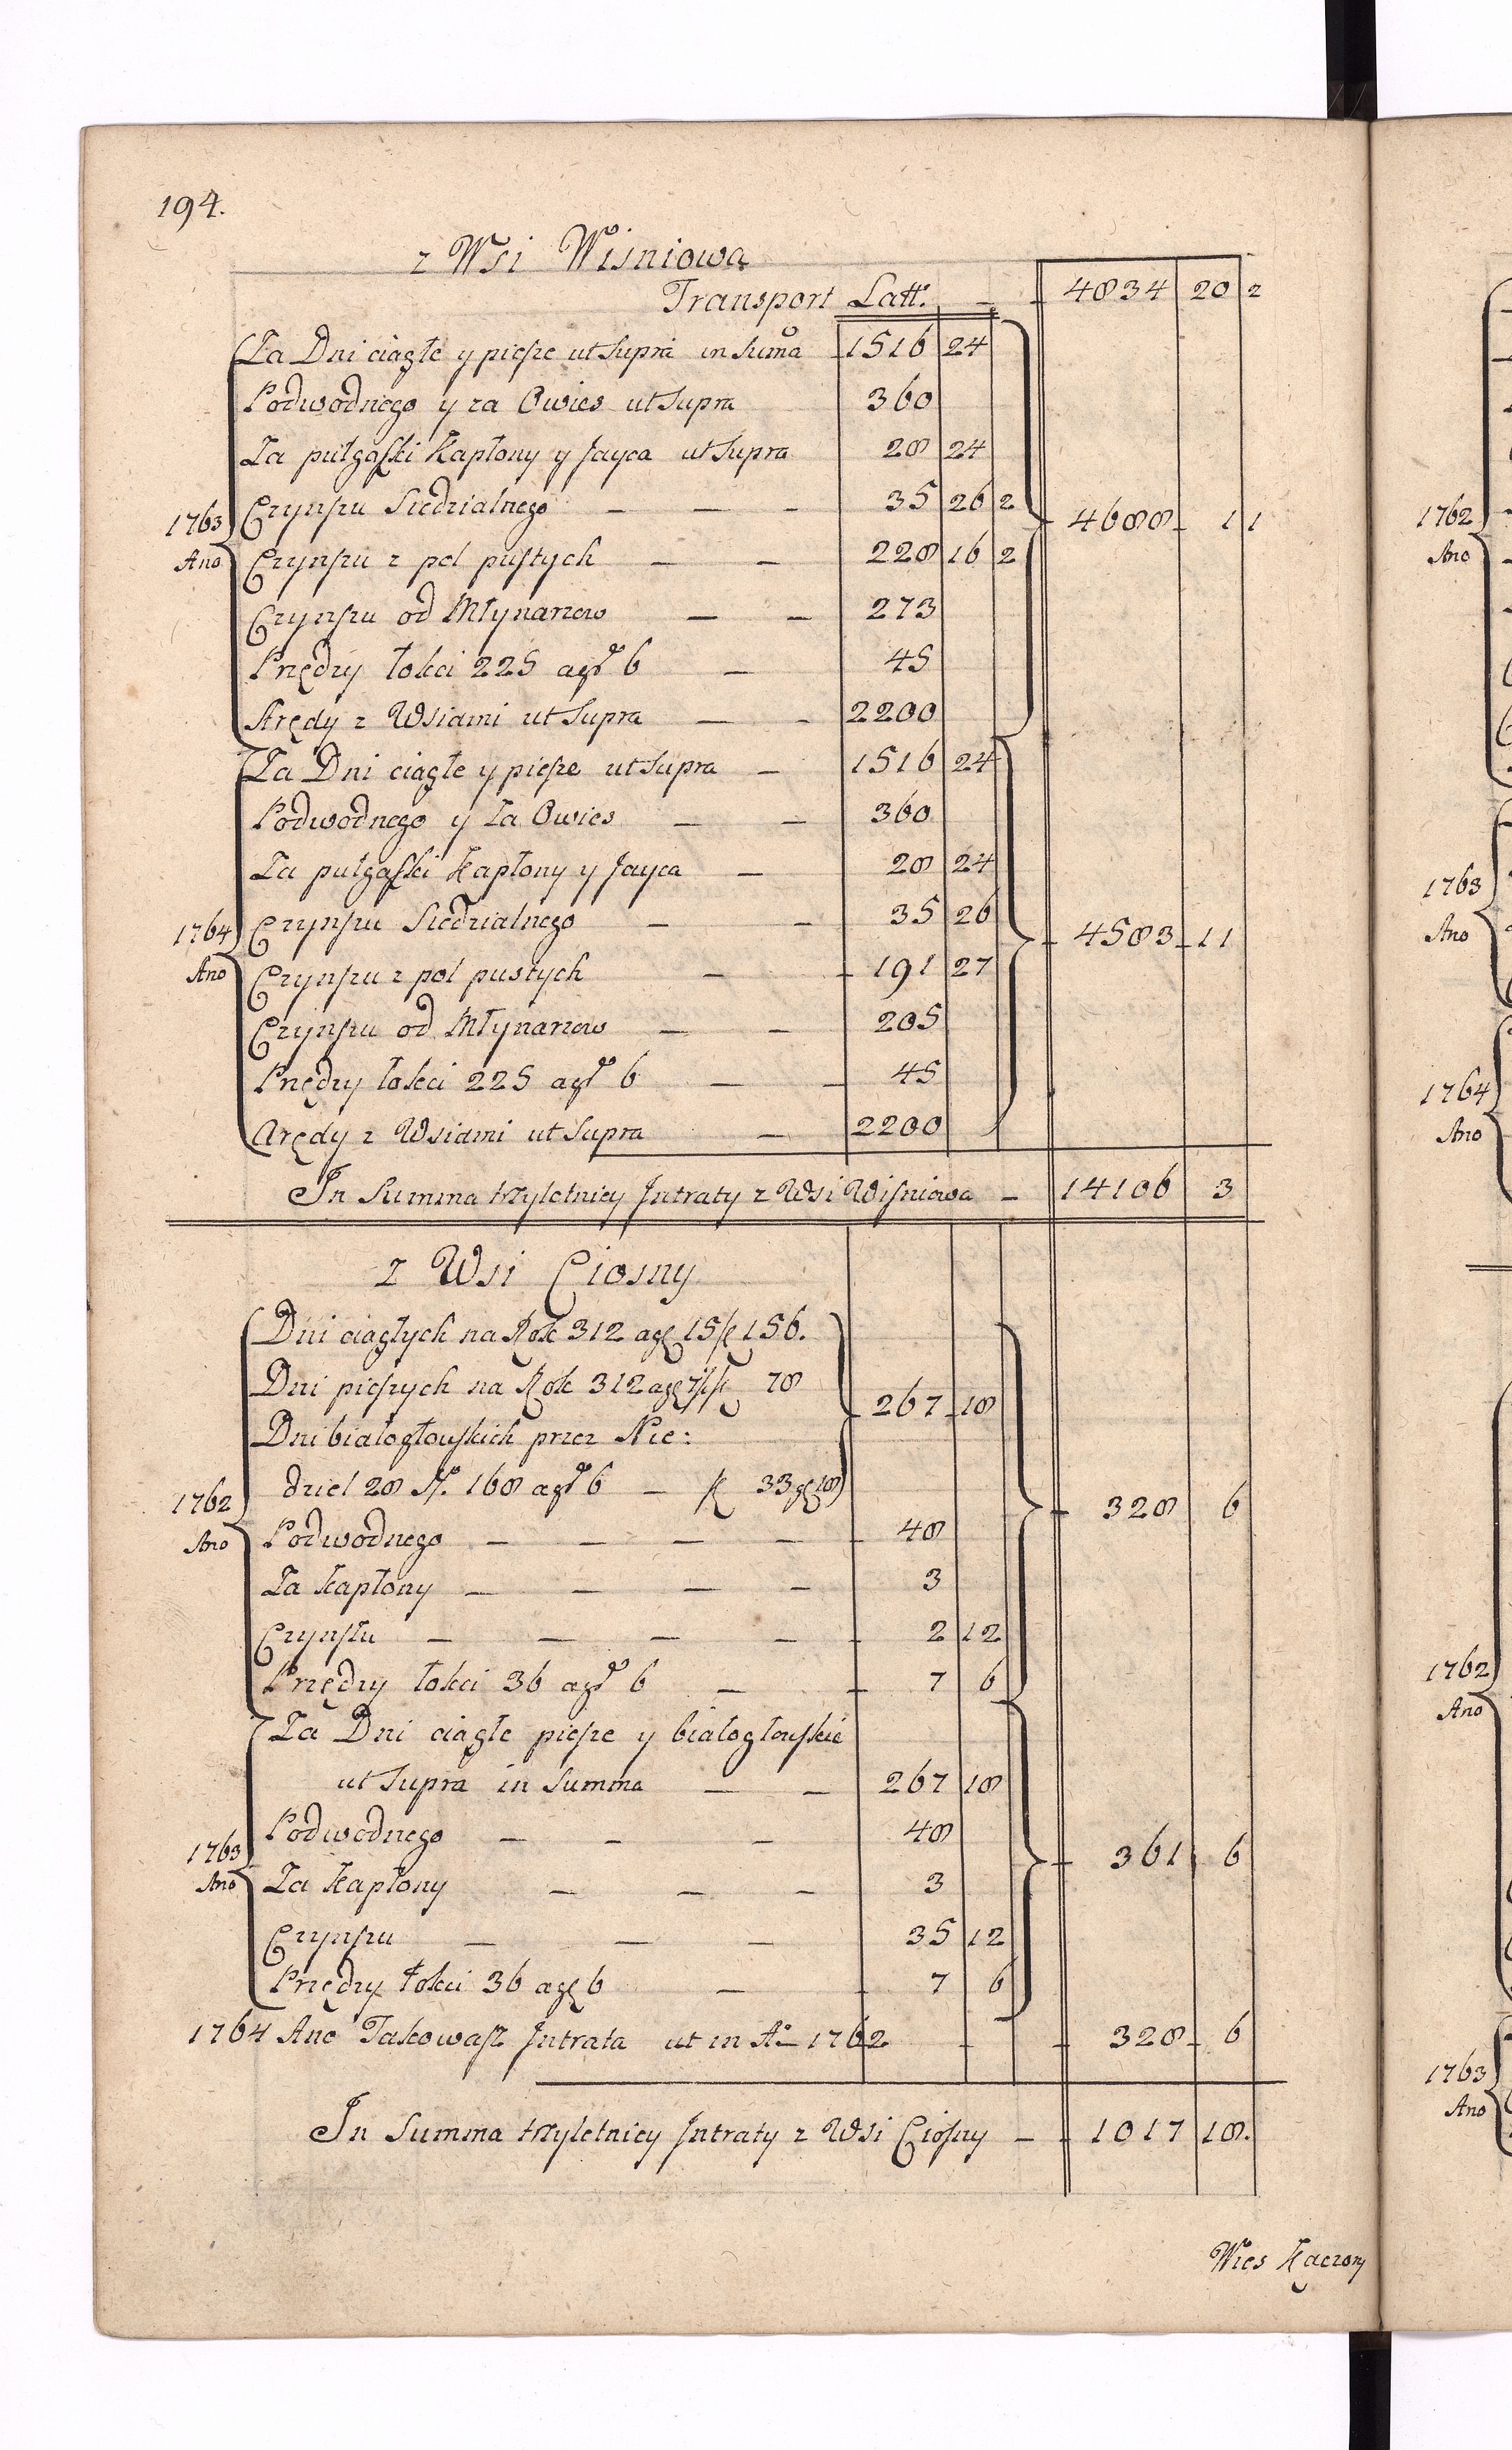 194.
z Wsi Wisniowa
Transport Latt: 4834 20 2
Za Dni ciągłe y piesze ut supra in Suma 1516 24
Podwodnego y za Owies ut Supra 360
Za pułgąski Kapłony y Jayca ut Supra 28 24
Czynszu Siedzialnego 35 26 2
1763 4688 1 1
Ano Czynszu z pol pustych 228 16 2
Czynszu od Młynarzow 273
Przędzy łokci 225 a gr 6 45
Arędy z Wsiami ut Supra 2200
Za Dni ciągłe y piesze ut Supra 1516 24
Podwodnego y Za Owies 360
Za pułgąski Kapłony y Jayca 28 24
1764 Czynszu Siedzialnego 35 26
4583 11
Ano Czynszu z pol pustych 191 27
Czynszu od Młynarzow 205
Przędzy łokci 225 a gr 6 45
Arędy z Wsiami ut Supra 2200
In Summa trzyletniey Jntraty z Wsi Wiszniowa 14106 3
z Wsi Ciosny
Dni ciągłych na Rok 312 a gr 15 fl 156.
Dni pieszych na Rok 312 a gr 7½ fl 78
267 18
Dni białogłowskich przez Nie:
dziel 28 No. 168 a gr 6 fl 33 gr 18
1762 328 6
Ano Podwodnego 48
Za Kapłony 3
Czynszu 2 12
Przędzy łokci 36 a gr 6 7 6
Za Dni ciągłe piesze y białogłowskie
ut Supra in Summa 267 18
Podwodnego 48
1763 361 6
Ano Za Kapłony 3
Czynszu 35 12
Przędzy łokci 36 a gr 6 7 6
1764 Ano Takowasz Jntrata ut in Ao 1762 328 6
In Summa trzyletniey Jntraty z Wsi Ciosny 1017 18.
Wies Kączony
1762
Ano
1763
Ano
1764
Ano
1762
Ano
1763
Ano